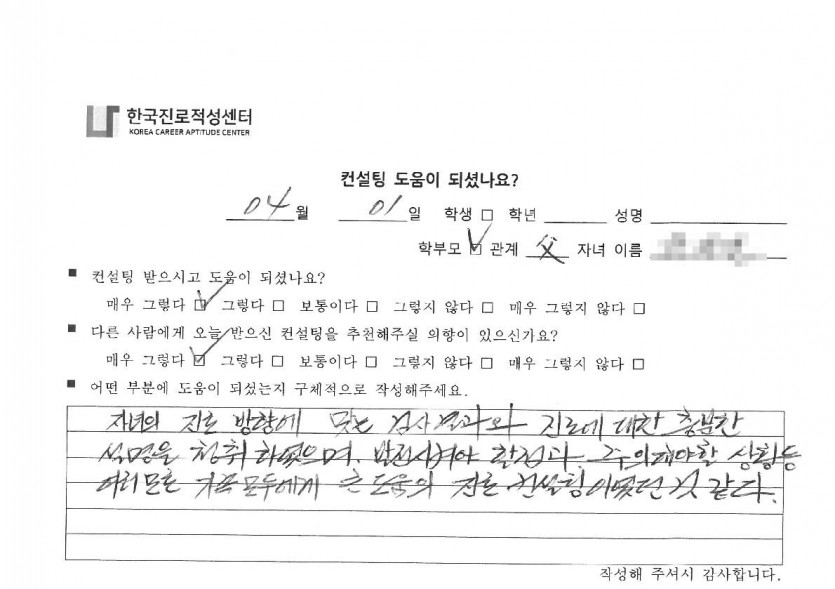 한국진로적성센터
KOREA CAREER APTITUDE CENTER
컨설팅 도움이 되셨나요?
04 월 01 일 학생 □ 학년 성명
학부모 ☑ 관계 父 자녀 이름
■ 컨설팅 받으시고 도움이 되셨나요?
매우 그렇다 ☑ 그렇다 □ 보통이다 □ 그렇지 않다 □ 매우 그렇지 않다 □
■ 다른 사람에게 오늘 받으신 컨설팅을 추천해주실 의향이 있으신가요?
매우 그렇다 ☑ 그렇다 □ 보통이다 □ 그렇지 않다 □ 매우 그렇지 않다 □
■ 어떤 부분에 도움이 되셨는지 구체적으로 작성해주세요.
자녀의 진로 방향에 맞는 검사결과와 진로에 대한 충분한
설명을 청취 하였으며, 발전시켜야 할점과 주의해야할 상황등
여러모로 가족모두에게 큰 도움의 진로 컨설팅이였던 것 같다.
작성해 주셔서 감사합니다.